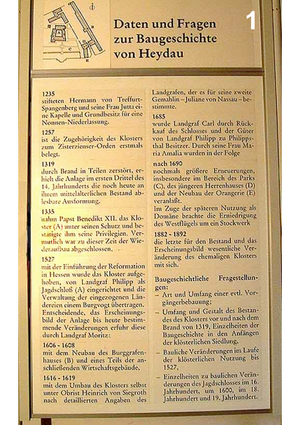 1
Daten und Fragen
zur Baugeschichte
von Heydau
1235
stifteten Hermann von Treffurt-
Spangenberg und seine Frau Jutta ei-
ne Kapelle und Grundbesitz für eine
Nonnen-Niederlassung.
1257
ist die Zugehörigkeit des Klosters
zum Zisterzienser-Orden erstmals
belegt.
1319
durch Brand in Teilen zerstört, er-
hielt die Anlage im ersten Drittel des
14. Jahrhunderts die noch heute an
ihrem mittelalterlichen Bestand ab-
lesbare Ausformung.
1335
nahm Papst Benedikt XII. das Klo-
ster (A) unter seinen Schutz und be-
stätigte ihm seine Privilegien. Ver-
mutlich war zu dieser Zeit der Wie-
deraufbau abgeschlossen.
1527
mit der Einführung der Reformation
in Hessen wurde das Kloster aufge-
hoben, von Landgraf Philipp als
Jagdschloß (A) eingerichtet und die
Verwaltung der eingezogenen Län-
dereien einem Burgvogt übertragen.
Entscheidende, das Erscheinungs-
bild der Anlage bis heute bestim-
mende Veränderungen erfuhr diese
durch Landgraf Moritz:
1606 - 1608
mit dem Neubau des Burggrafen-
hauses (B) und eines Teils der an-
schließenden Wirtschaftsgebäude,
1616 - 1619
mit dem Umbau des Klosters selbst
unter Obrist Heinrich von Siegroth
nach detaillierten Angaben des
Landgrafen, der es für seine zweite
Gemahlin – Juliane von Nassau – be-
stimmte.
1685
wurde Landgraf Carl durch Rück-
kauf des Schlosses und der Güter
von Landgraf Philipp zu Philipps-
thal Besitzer. Durch seine Frau Ma-
ria Amalia wurden in der Folge
nach 1690
nochmals größere Erneuerungen,
insbesondere im Bereich des Parks
(C), des jüngeren Herrenhauses (D)
und der Neubau der Orangerie (E)
veranlaßt.
Im Zuge der späteren Nutzung als
Domäne brachte die Erniedrigung
des Westflügels um ein Stockwerk
1882 - 1892
die letzte für den Bestand und das
Erscheinungsbild wesentliche Verän-
derung des ehemaligen Klosters
mit sich.
Baugeschichtliche Fragestellun-
gen:
– Art und Umfang einer evtl. Vor-
gängerbebauung;
– Umfang und Gestalt des Bestan-
des des Klosters vor und nach dem
Brand von 1319, Einzelheiten der
Baugeschichte in den Anfängen
der klösterlichen Siedlung,
– Bauliche Veränderungen im Laufe
der klösterlichen Nutzung bis
1527,
– Einzelheiten zu baulichen Verän-
derungen des Jagdschlosses im 16.
Jahrhundert, um 1600, im 18.
Jahrhundert und 19. Jahrhundert.